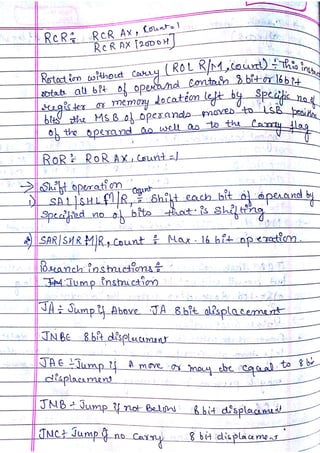 RCR÷ RCR AX, Count=1
RCR AX [2000H]
Rotation without carry (ROL R/M, Count) ÷ This
rotate all bit of operand contain 8 bit or 16 bit
register or memory location left by specific no. of
bits the MSB of operands moves to LSB
of the operand as well as to the Carry flag
ROR÷ ROR AX, Count=1
→ Shift operation
1) SAL|SHL M/R, Count ÷ Shift each bit of operand by
Specified no of bits that is Shifting
2) SAR/SHR M/R, Count ÷ Max. 16 bit operation.
Branch instructions÷
Jump instruction
JA÷ Jump if Above JA 8 bit displacement
JNBE 8 bit displacement
JAE ÷ Jump if A move or may be equal to 8 bit
displacement
JNB÷ Jump if not Below 8 bit displacement
JNC÷ Jump if no Carry 8 bit displacement